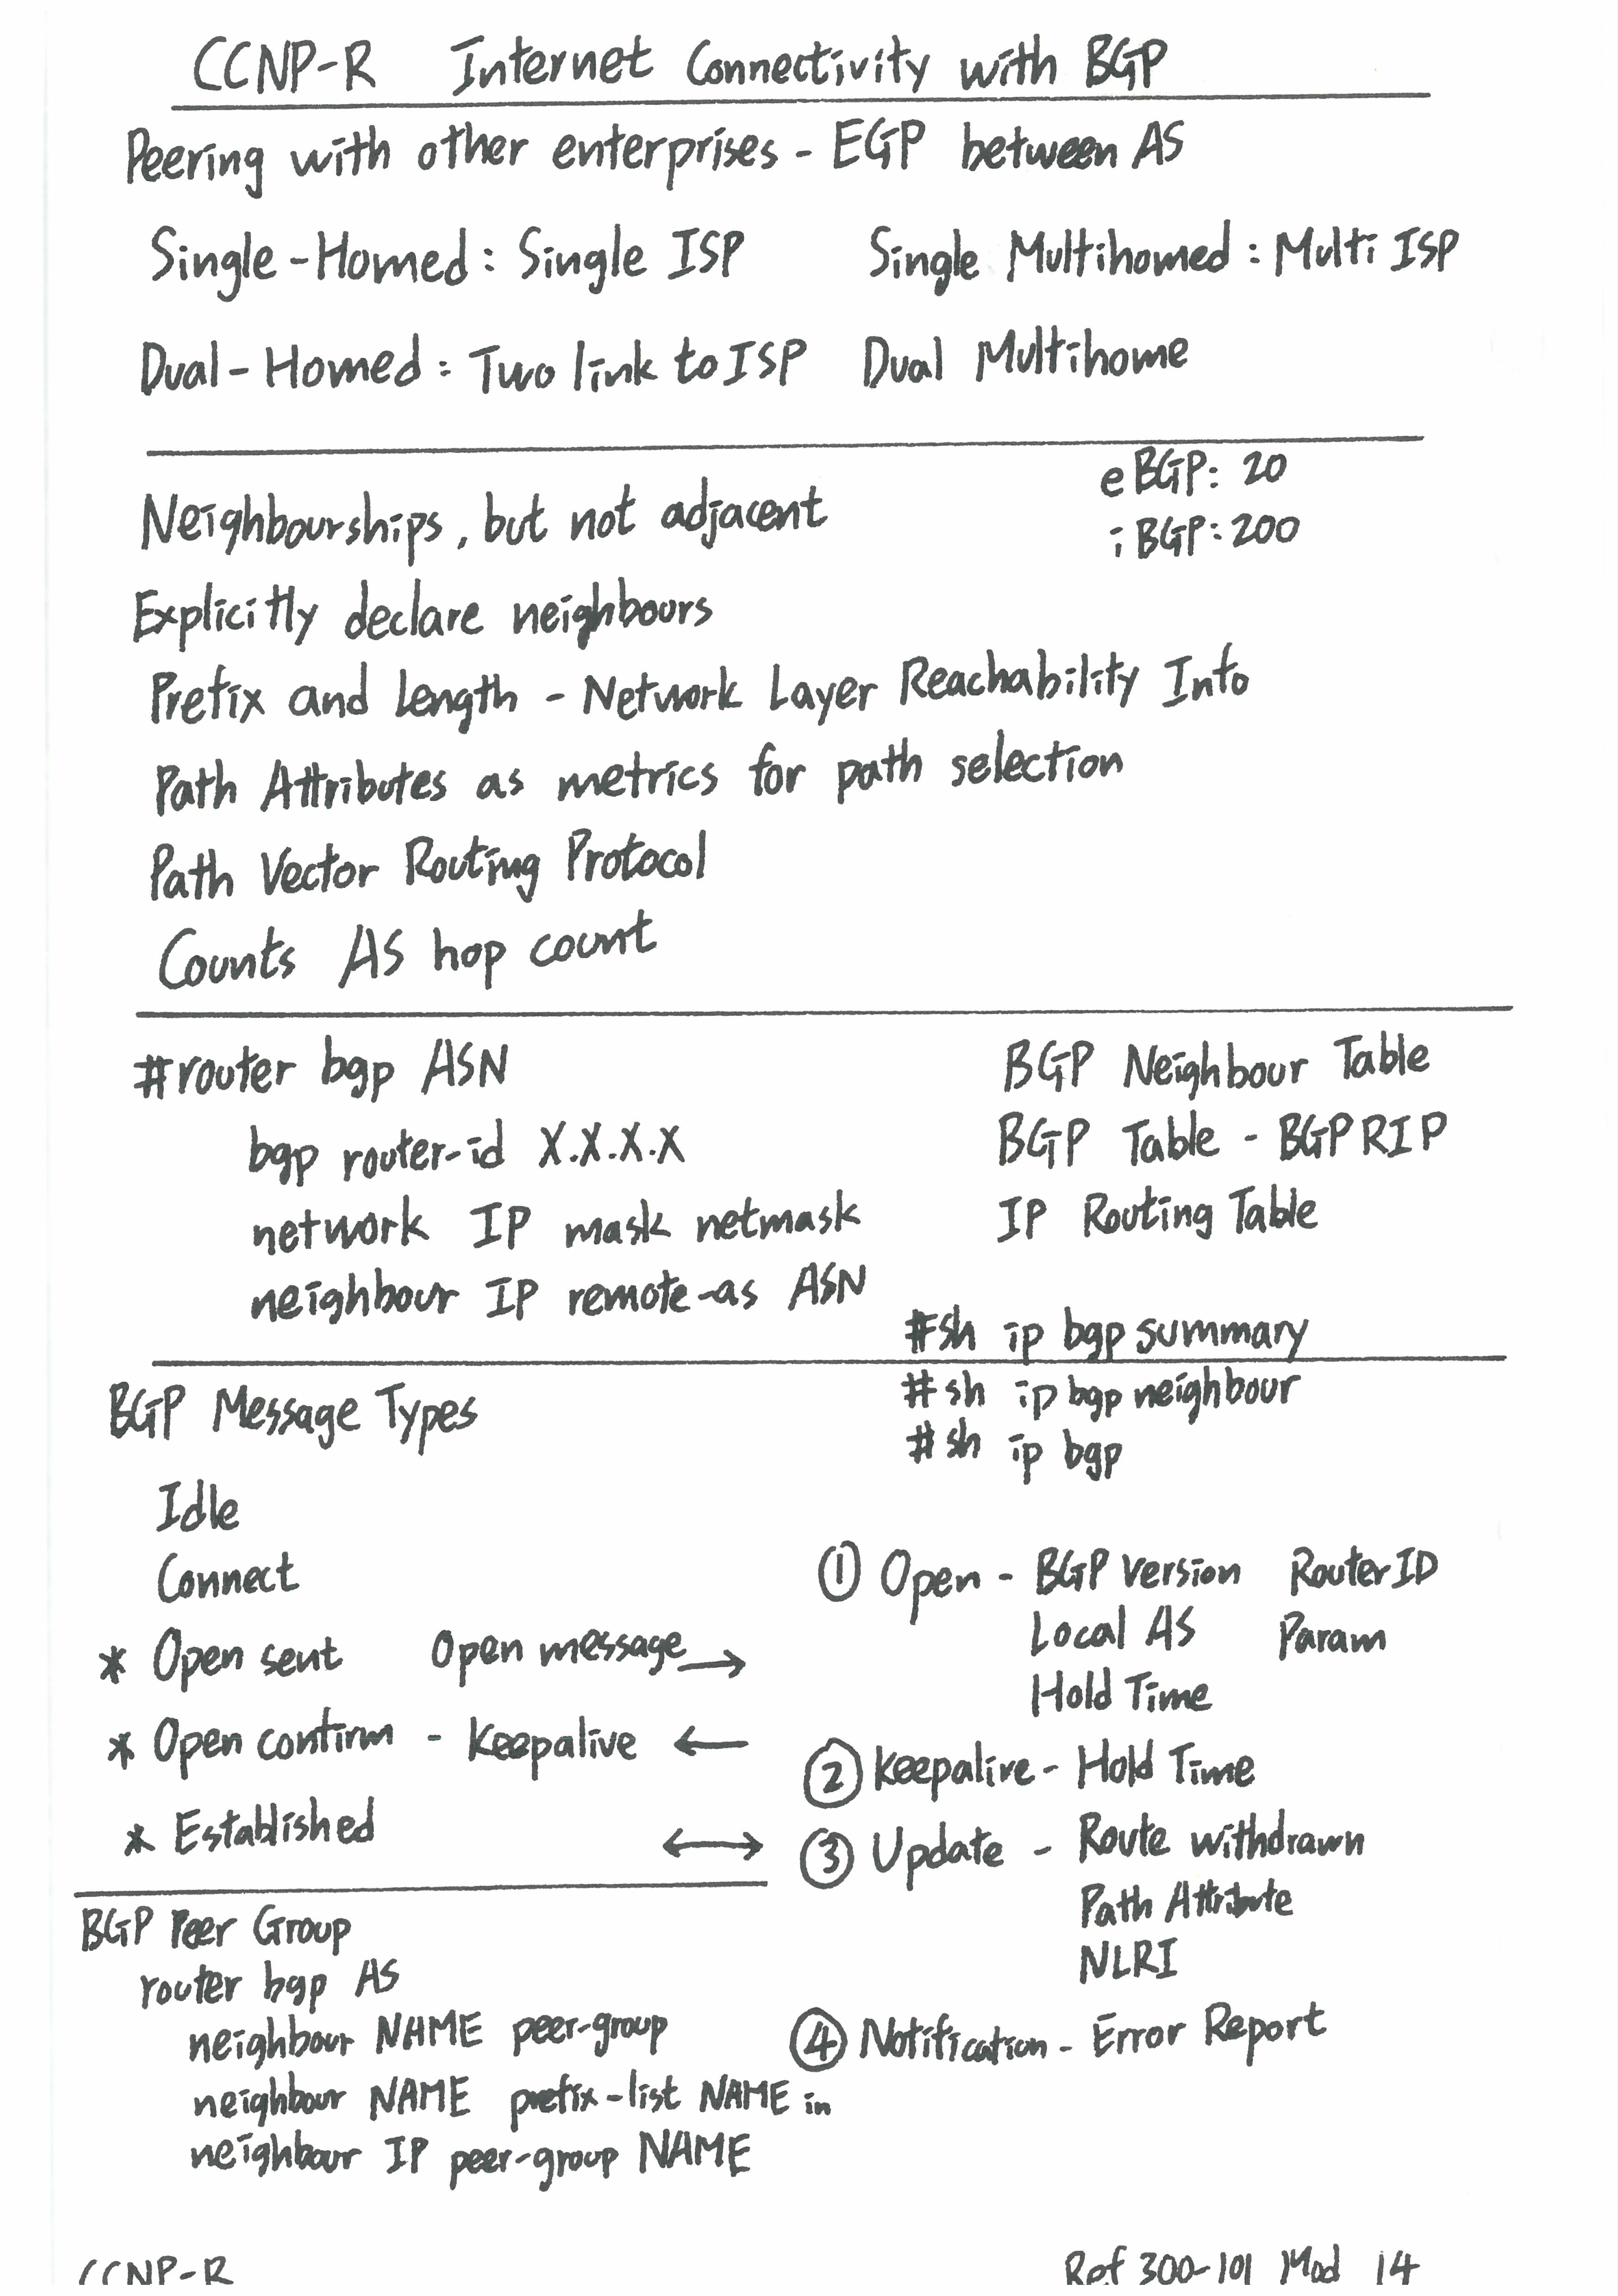 CCNP-R Internet Connectivity with BGP
Peering with other enterprises - EGP between AS
Single-Homed: Single ISP
Single Multihomed: Multi ISP
Dual-Homed: Two link to ISP
Dual Multihome
eBGP: 20
iBGP: 200
Neighbourships, but not adjacent
Explicitly declare neighbours
Prefix and Length - Network Layer Reachability Info
Path Attributes as metrics for path selection
Path Vector Routing Protocol
Counts AS hop count
#router bgp ASN
bgp router-id X.X.X.X
network IP mask netmask
neighbour IP remote-as ASN
BGP Neighbour Table
BGP Table - BGP RIP
IP Routing Table
#sh ip bgp summary
#sh ip bgp neighbour
#sh ip bgp
BGP Message Types
Idle
Connect
* Open sent Open message →
* Open confirm - Keepalive ←
* Established ↔
① Open - BGP Version Router ID
Local AS Param
Hold Time
② Keepalive - Hold Time
③ Update - Route withdrawn
Path Attribute
NLRI
④ Notification - Error Report
BGP Peer Group
router bgp AS
neighbour NAME peer-group
neighbour NAME prefix-list NAME in
neighbour IP peer-group NAME
CCNP-R
Ref 300-101 Mod 14